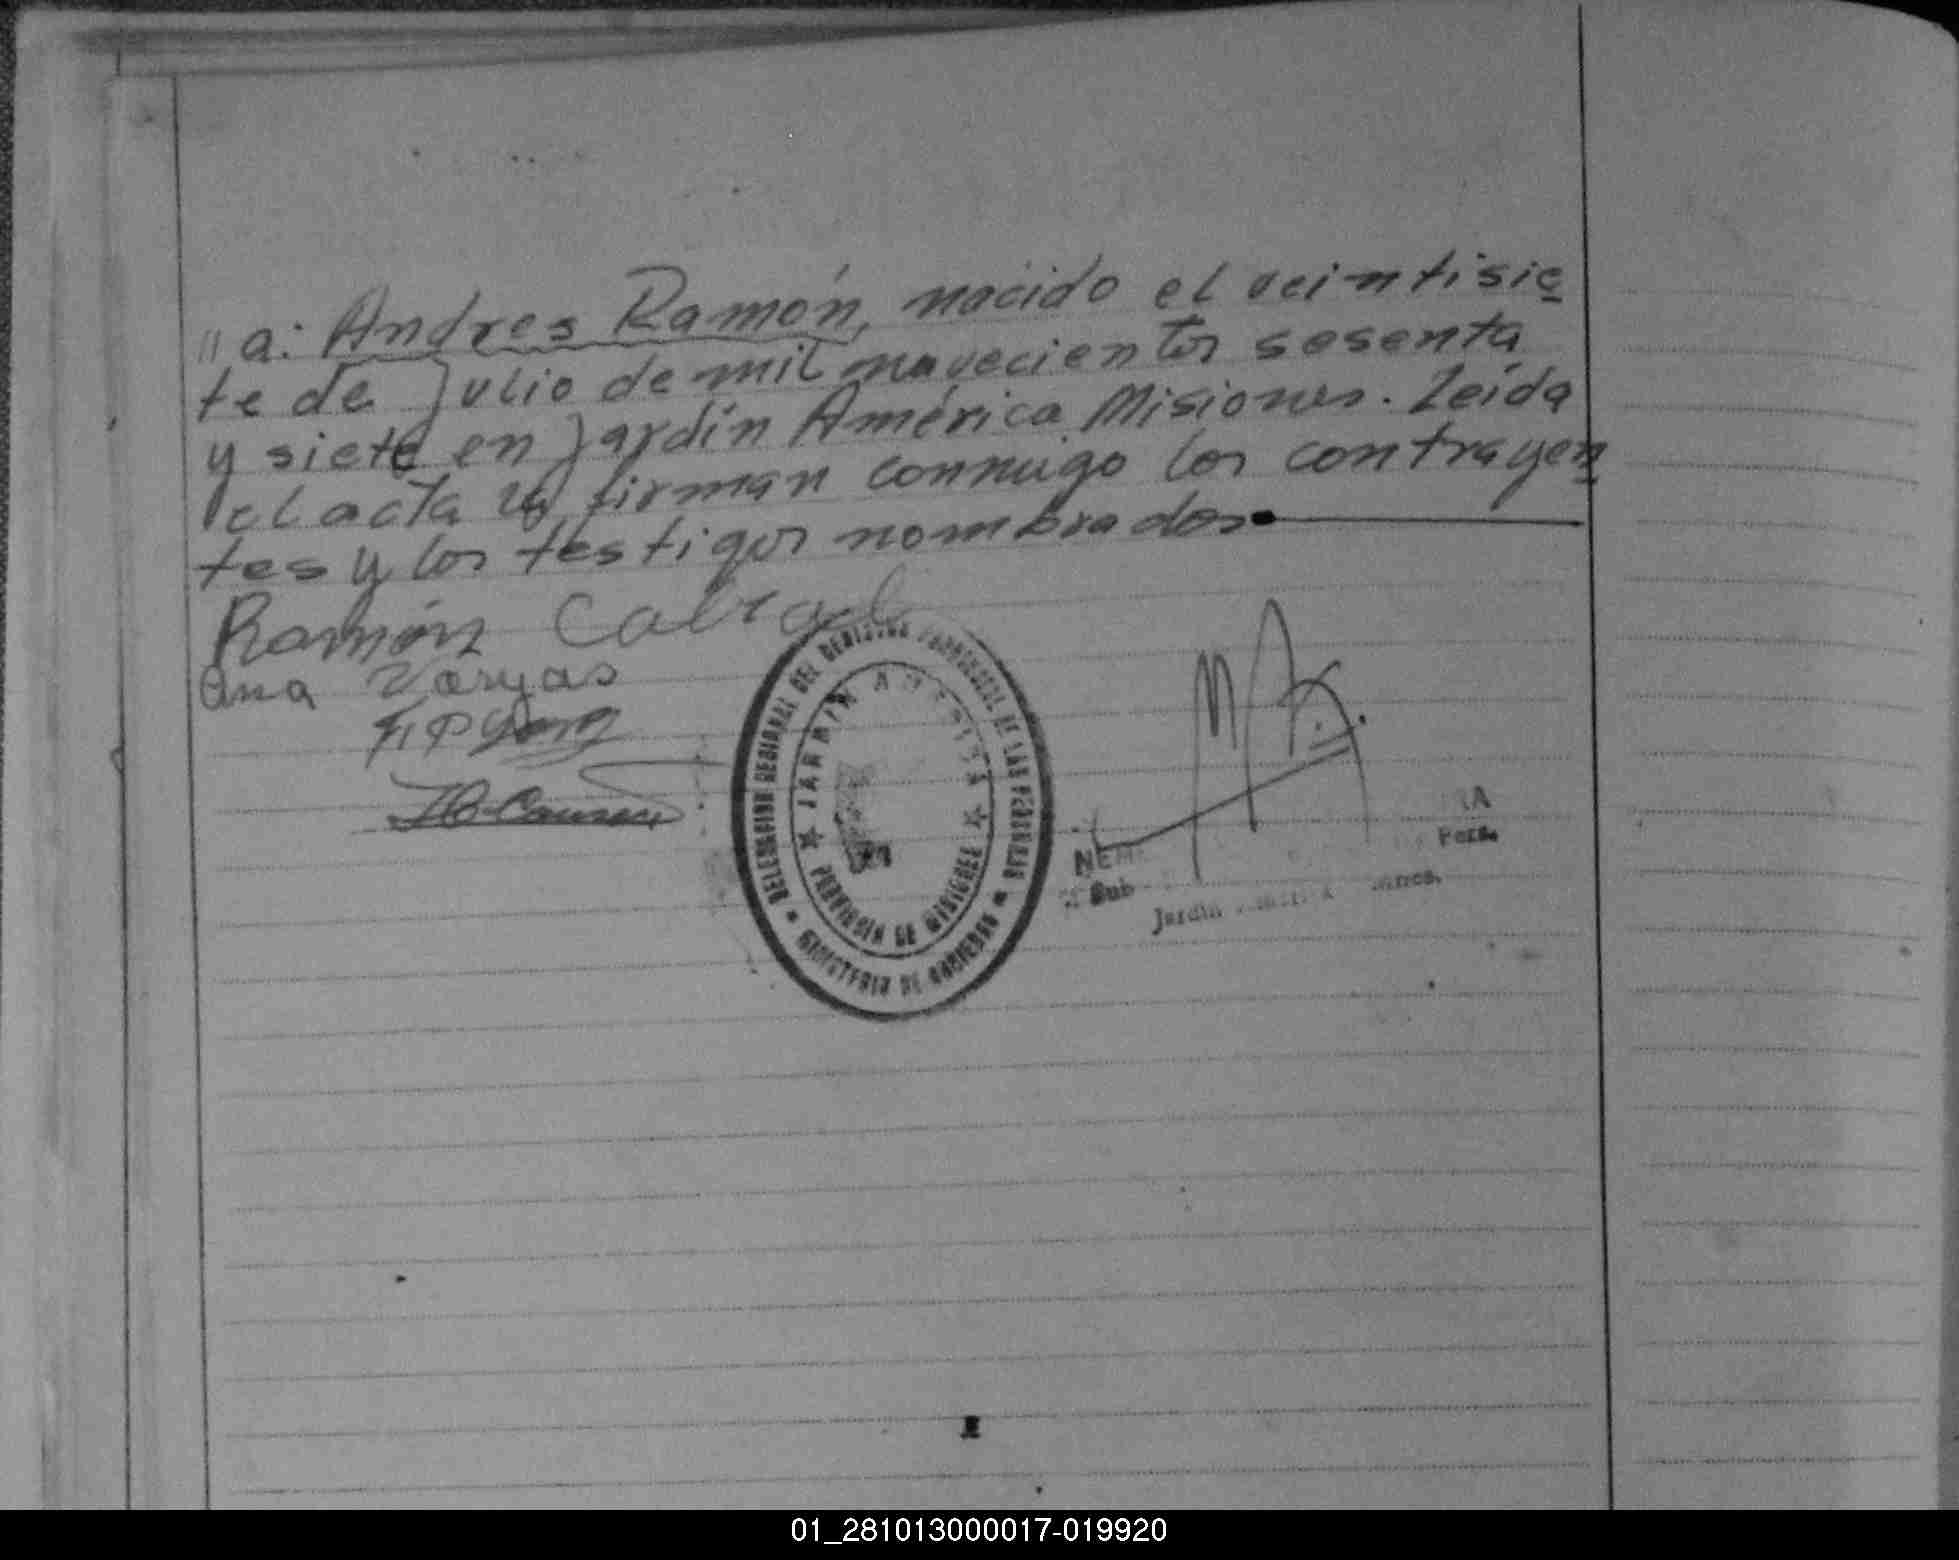 " a: Andres Ramón, nacido el veintisie
te de Julio de mil novecientos sesenta
y siete en Jardín América Misiones. Leída
el acta la firman conmigo los contrayen
tes y los testigos nombrados
Ramón Cabral
Ana Vargas
DELEGACION REGIONAL DEL REGISTRO PROVINCIAL DE LAS PERSONAS
MINISTERIO DE GOBIERNO
JARDIN AMERICA
PROVINCIA DE MISIONES
Pers.
Sub
Jardín
01_281013000017-019920